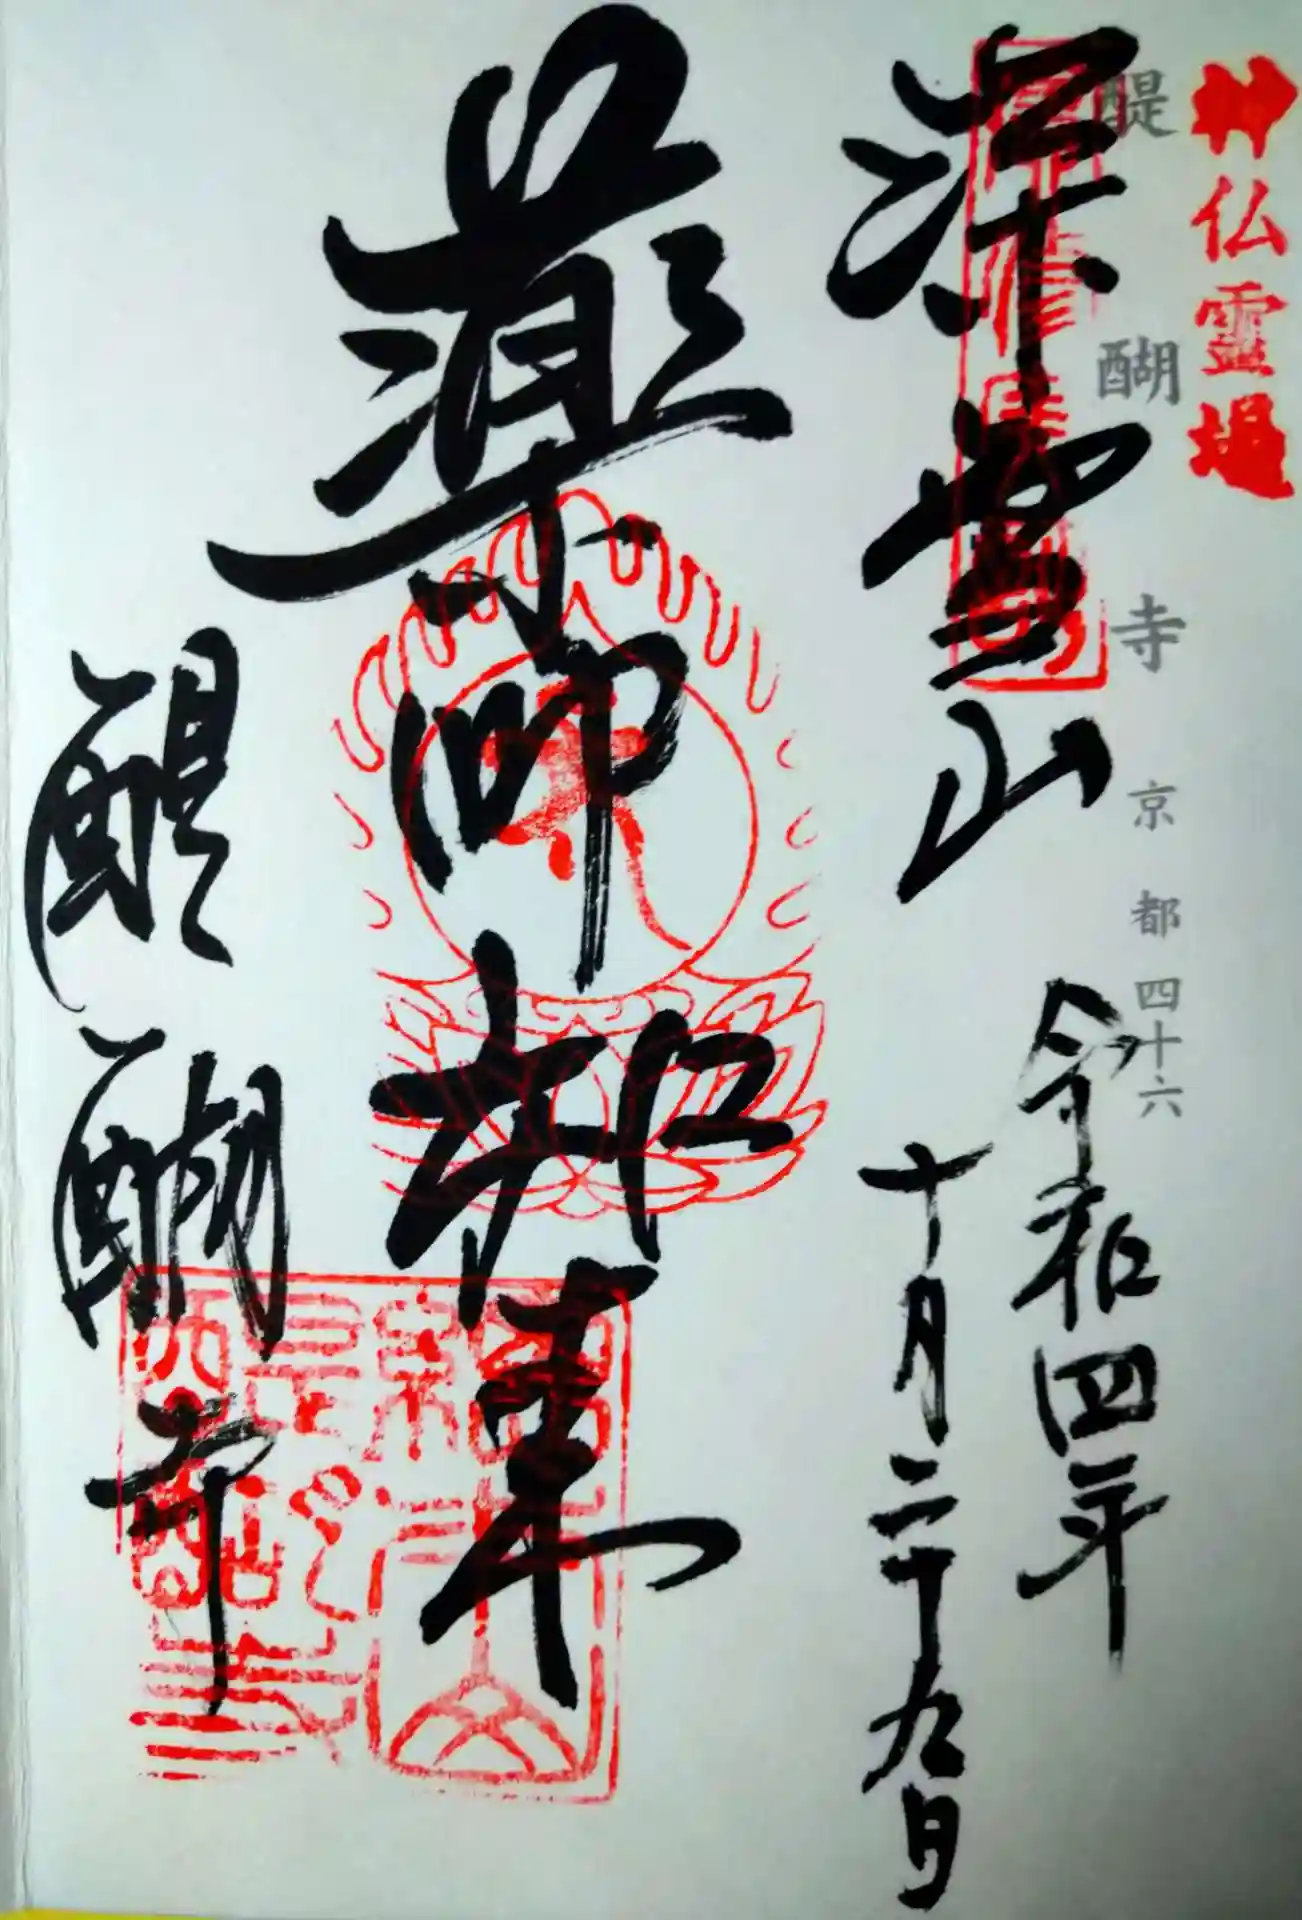 神仏霊場
醍醐寺 京都四十六
深雪山
令和四年
十月二十九日
薬師如来
醍醐寺